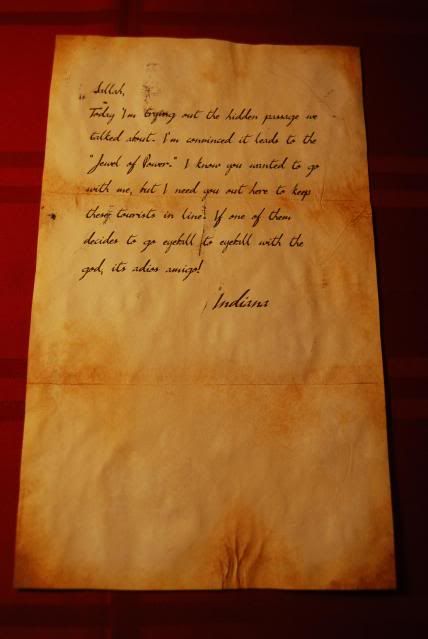 Sallah,
Today I'm trying out the hidden passage we
talked about. I'm convinced it leads to the
"Jewel of Power." I know you wanted to go
with me, but I need you out here to keep
these tourists in line. If one of them
decides to go eyeball to eyeball with the
god, its adios amigo!
Indiana